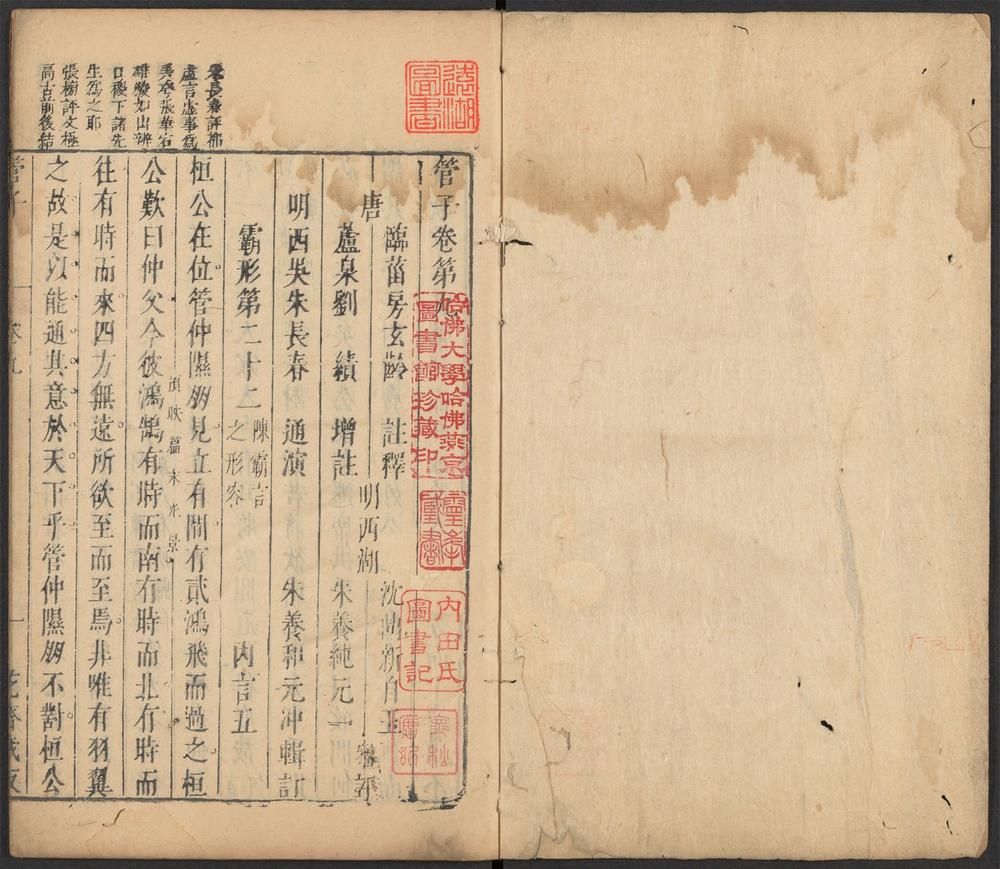 遠湖
圖書
朱長春評都
虛言虛事寫
口稷下諸先
生為之耶
張榜評文極
高古前後結
管子卷第九
唐
臨菑房玄齡 註釋
蘆泉劉 績 增註
明西湖
沈鼎新自玉
朱養純元一
叅評
明西吳朱長春 通演
朱養和元冲輯訂
霸形第二十二
陳霸言
之形容
內言五
桓公在位管仲隰朋見立有間有貳鴻飛而過之桓
公歎曰仲父今彼鴻鵠有時而南有時而北有時而
頂歌篇末光景
往有時而來四方無遠所欲至而至焉非唯有羽翼
之故是以能通其意於天下乎管仲隰朋不對桓公
管子
卷九
一
花齋藏板
哈佛大學哈佛燕京
圖書館珍藏印
內田氏
圖書記